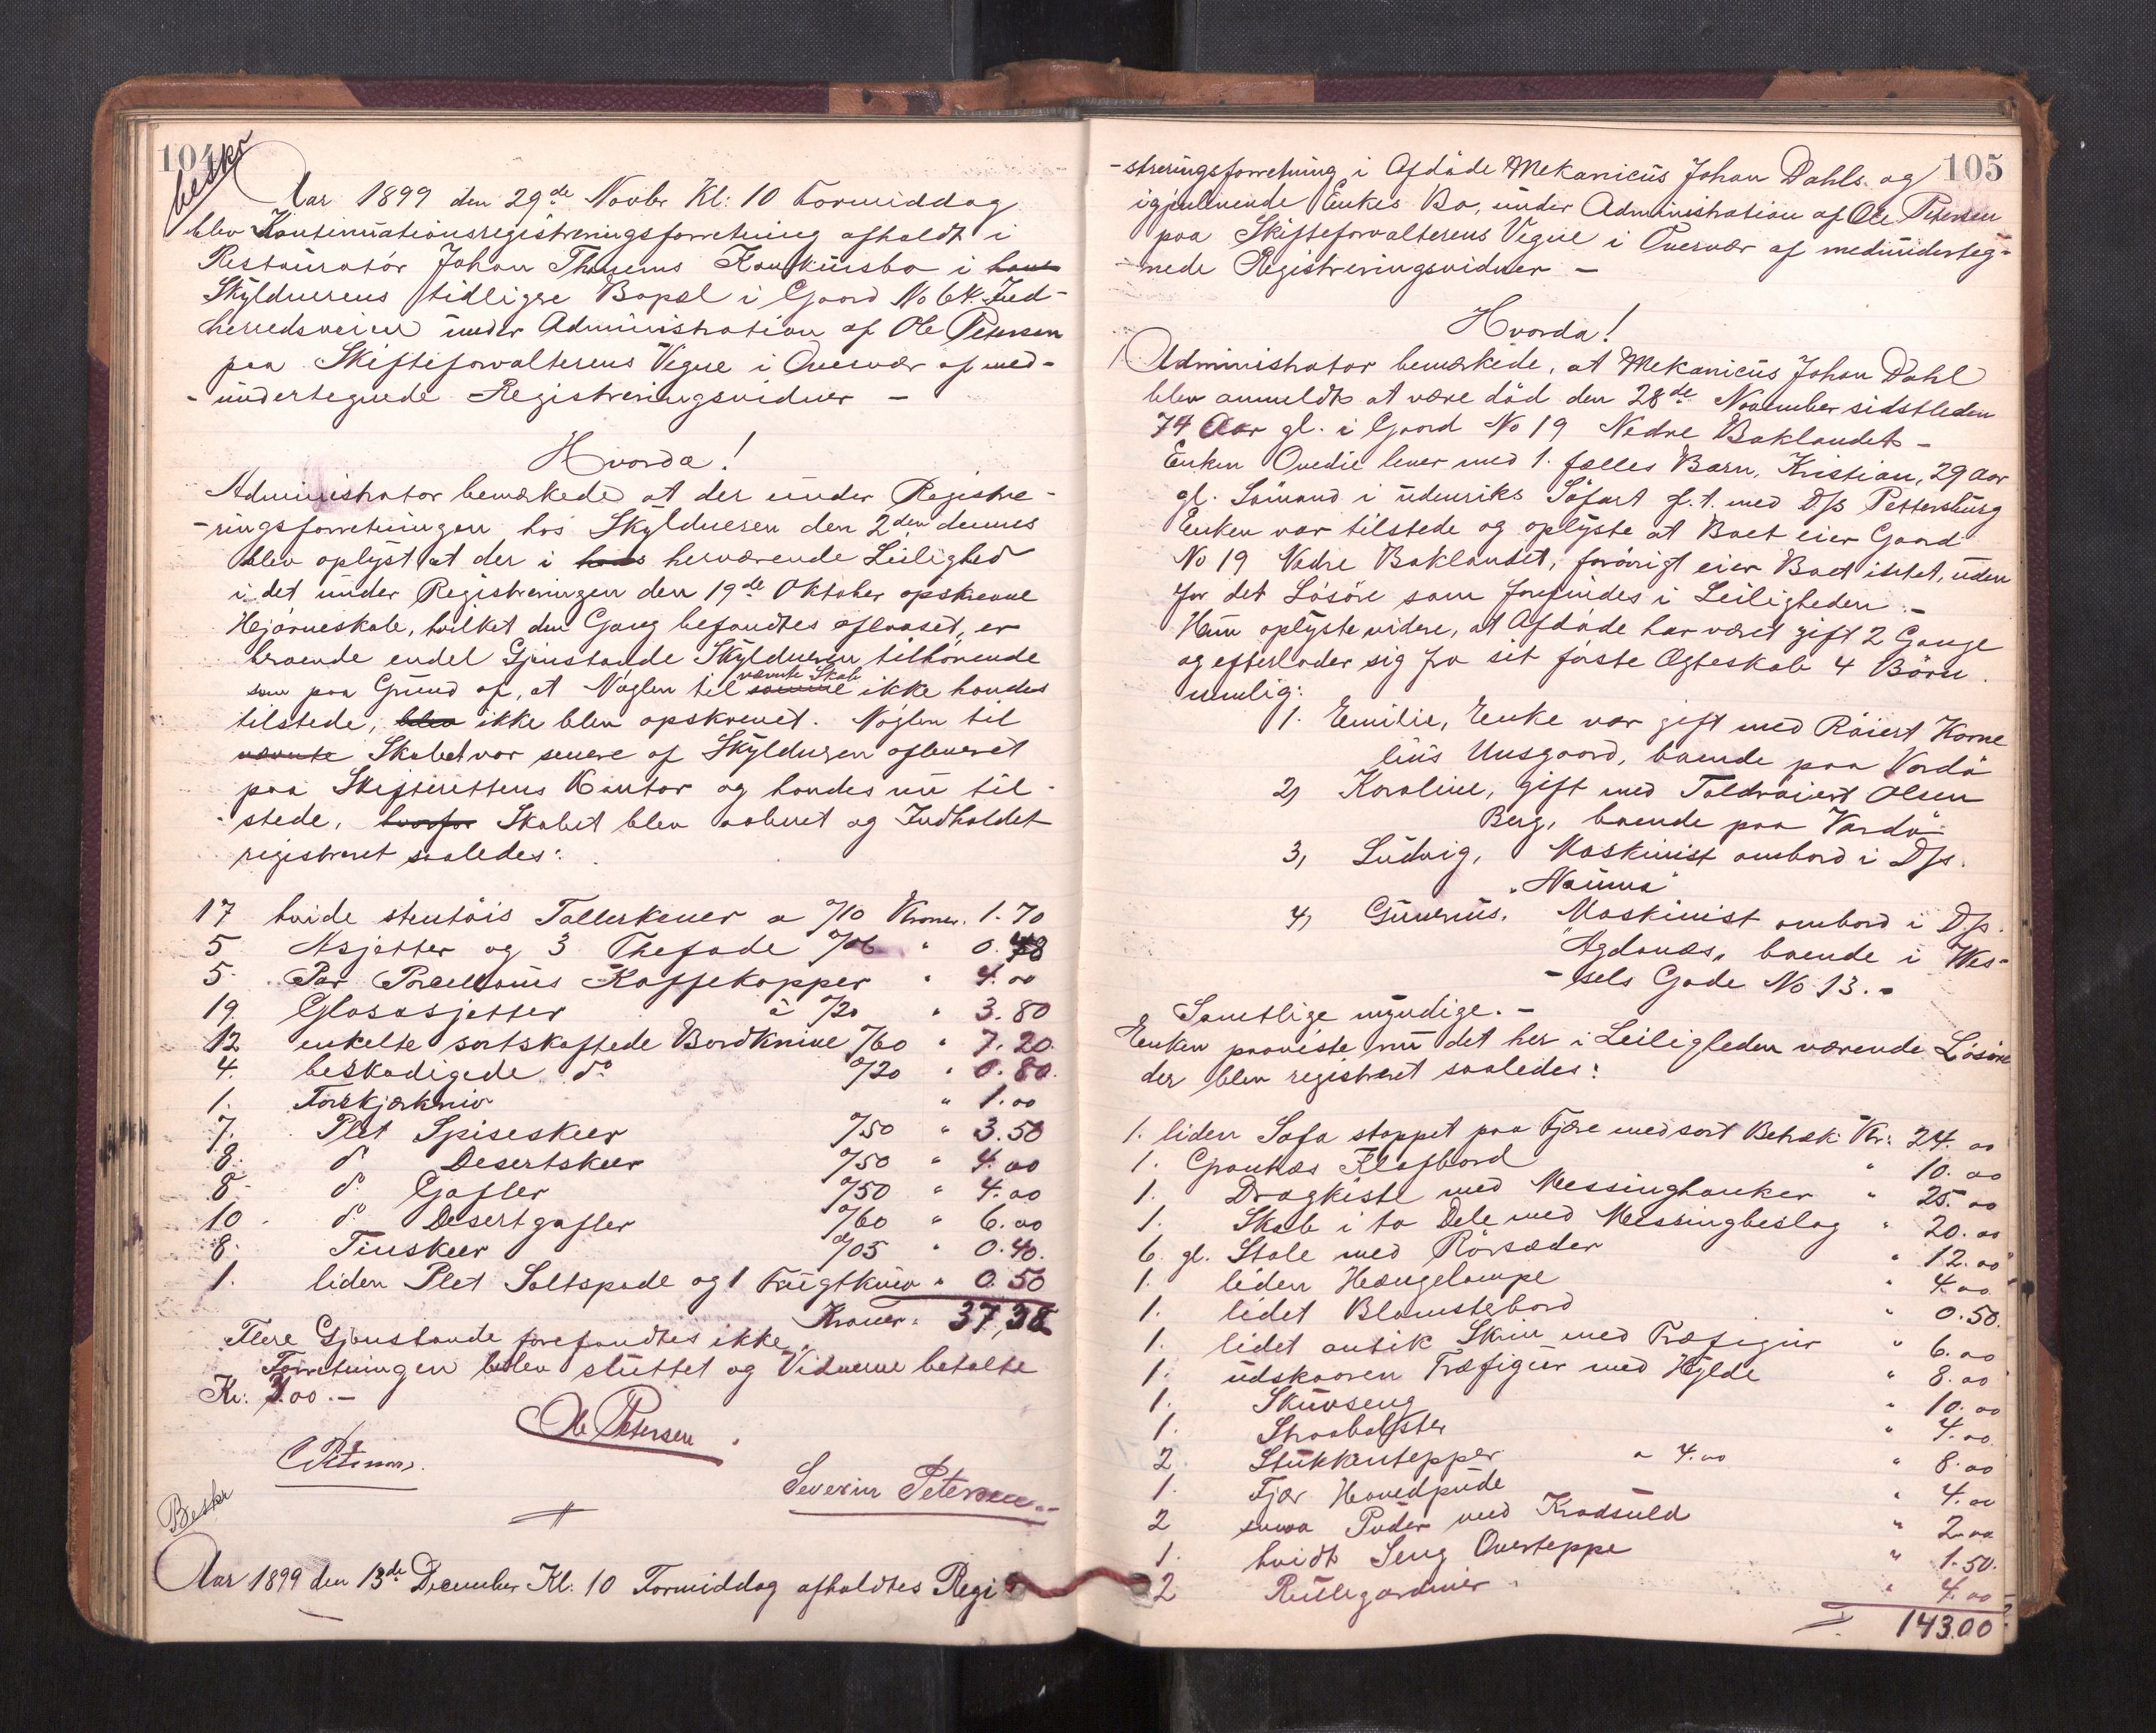 104
beskr
Aar 1899 den 29de Novbr Kl: 10 Formiddag
blev Kontinuationsregistreringsforretning afholdt i
Restauratör Johan Konkursbo i hans
Skyldnerens tidligere Bopæl i Gaard No 64. Ind-
herredsveien under Administration af Ole Petersen
paa Skifteforvalterens Vegne i Overvær af med-
-undertegnede Registreringsvidner -
Hvorda!
Administrator bemærkede at der under Registre-
-ringsforretningen hos Skyldneren den 2den dennes
blev oplyst at der i hans herværende Leilighed
i det under Registreringen den 19de Oktober opskrevne
Hjörneskab, hvilket den Gang befandtes aflaaset, er
beroende endel Gjenstande Skyldneren tilhörende
som paa Grund af, at Nöglen til samme nævnte Skab ikke havdes
tilstede, blev ikke blev opskrevet. Nöglen til
nævnte Skabet var senere af Skyldneren afleveret
paa Skifterettens Kontor og havdes nu til-
-stede, hvorfor Skabet blev aabnet og Indholdet
registreret saaledes:
17 hvide stentöis Tallerkener a 0/10 Kroner. 1.70
5 Asjetter og 3 Thefade 0/06 " 0.48
5 Par Porcellains Kaffekopper " 4.00
19 Glasasjetter à 0/20 " 3.80
12 enkelte sortskaftede Bordknive 0/60 " 7.20
4. beskadigede do 0/20 " 0.80.
1. Forskjærkniv " 1.00
7. Plet Spiseskeer 0/50 " 3.50
8. do Desertskeer 0/50 " 4.00
8 do Gafler 0/50 " 4.00
10. do Desertgafler 0/60 " 6.00
8. Tinskeer 0/05 " 0.40.
1. liden Plet Saltspade og 1 Frugtkniv " 0.50
Kroner. 37,38
Flere Gjenstande forefandtes ikke.
Forretningen blev sluttet og Vidnerne betalte
Kr: 2.00.-
Ole Petersen.
Severin Petersen.
Beskr
Aar 1899 den 13de December Kl. 10 Formiddag afholdtes Regi
105
-streringsforretning i Afdöde Mekanicus Johan Dahls og
igjenlevende Enkes Bo, under Administration af Ole Petersen
paa Skifteforvalterens Vegne i Overvær af medunderteg-
-nede Registreringsvidner -
Hvorda!
Administrator bemærkede, at Mekanicus Johan Dahl
blev anmeldt at være död den 28de November sidstleden
74 Aar gl. i Gaard No 19 Nedre Baklandet -
Enken Ovedie lever med 1. fælles Barn, Kristian, 29 Aar
gl. Sömand i udenriks Söfart f. t. med D/s Pettersburg
Enken var tilstede og oplyste at Boet eier Gaard
No 19 Nedre Baklandet, forövrigt eier Boet intet, uden
for det Lösöre som forefindes i Leiligheden.-
Hun oplyste videre, at Afdöde har været gift 2 Gange
og efterlader sig fra sit förste Ægteskab 4 Börn
nemlig:
1. Emilie, Enke var gift med Röiert Korne
lius Unsgaard, boende paa Vardö
2, Karoline, gift med Toldröiert Olsen
Berg, boende paa Vardö
3, Ludvig, Maskinist ombord i D/s.
"Nauma"
4, Gunerius, Maskinist ombord i D/s.
"Agdanæs" boende i Wes-
-sels Gade No 13.-
Samtlige myndige.-
Enken paaviste nu det her i Leiligheden værende Lösöre
der blev registreret saaledes:
1. liden Sofa stoppet paa Fjære med sort Betræk Kr: 24.00
1. Granbæs Klafbord " 10.00
1. Dragkiste med Messinghanker " 25.00
1. Skab i to Dele med Messingbeslag " 20.00
6 gl. Stole med Rörsæder " 12.00
1. liden Hængelampe " 4.00
1. lidet Blomsterbord " 0.50.
1. lidet antik Skrin med Træfigur " 6.00
1. udskaaren Træfigur med Hylde " 8.00
1. Skuvseng " 10.00
1. Straabolster " 4.00
2 Stükkentepper a 4.00 " 8.00
1. Fjær Hovedpude " 4.00
2 smaa Puder med Kradsuld " 2.00
1. hvidt Seng Overteppe " 1.50.
2 Rullegardiner " 4.00
143.00